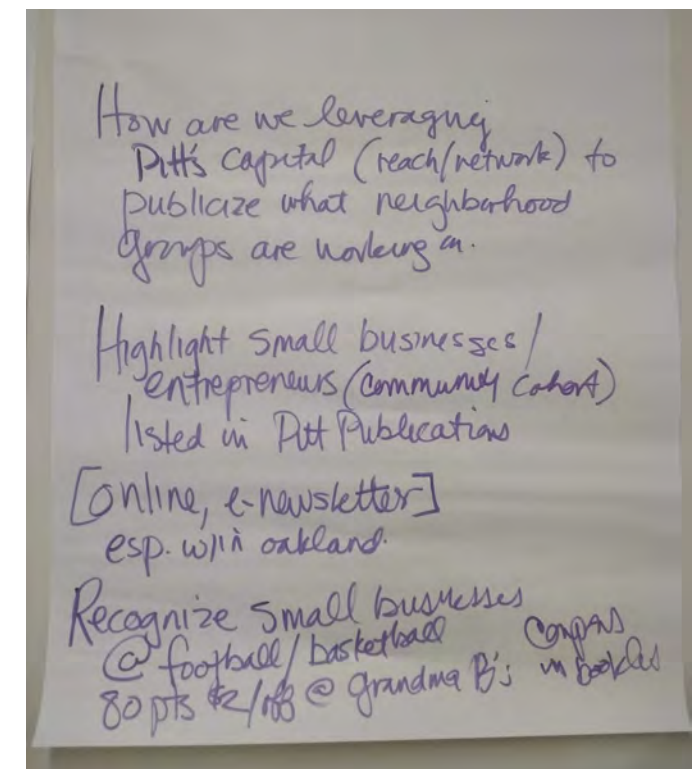 How are we leveraging
Pitt's capital (reach/network) to
publicize what neighborhood
groups are working on.
Highlight small businesses/
entrepreneurs (community cohort)
listed in Pitt Publications
[online, e-newsletter]
esp. w/in oakland.
Recognize small businesses
@ football/basketball
80 pts $2/off @ grandma B's
in